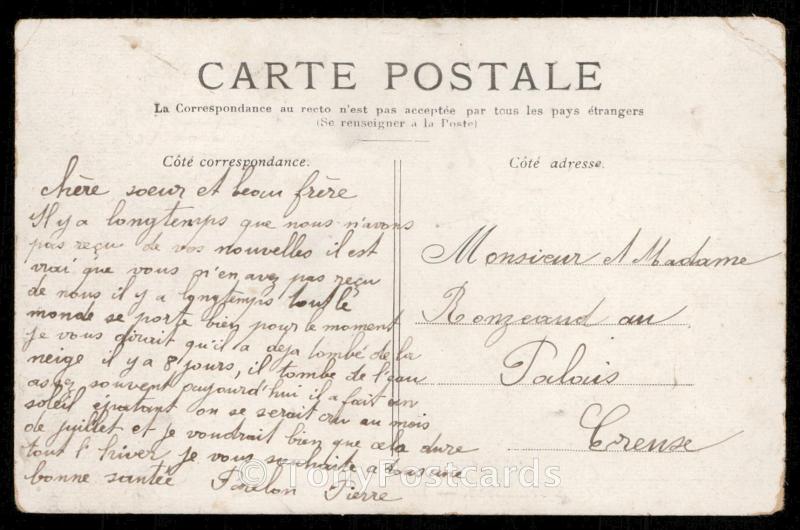 CARTE POSTALE
La Correspondance au recto n'est pas acceptée par tous les pays étrangers
(Se renseigner a la Poste)
Côté correspondance.
chère soeur et beau frère
Il y a longtemps que nous n'avons
pas reçu de vos nouvelles il est
vrai que vous n'en avez pas reçu
de nous il y a longtemps tout le
monde se porte bien pour le moment
je vous dirait qu'il a deja tombé de la
neige il y a 8 jours, il tombe de l'eau
assez souvent aujourd'hui il a fait un
soleil épatant on se serait cru au mois
de juillet et je voudrait bien que cela dure
tout l'hiver je vous souhaite a tous une
bonne santée Pierre
Côté adresse.
Monsieur et Madame
Ronzeaud au
Palais
Creuse
© TonyPostcards